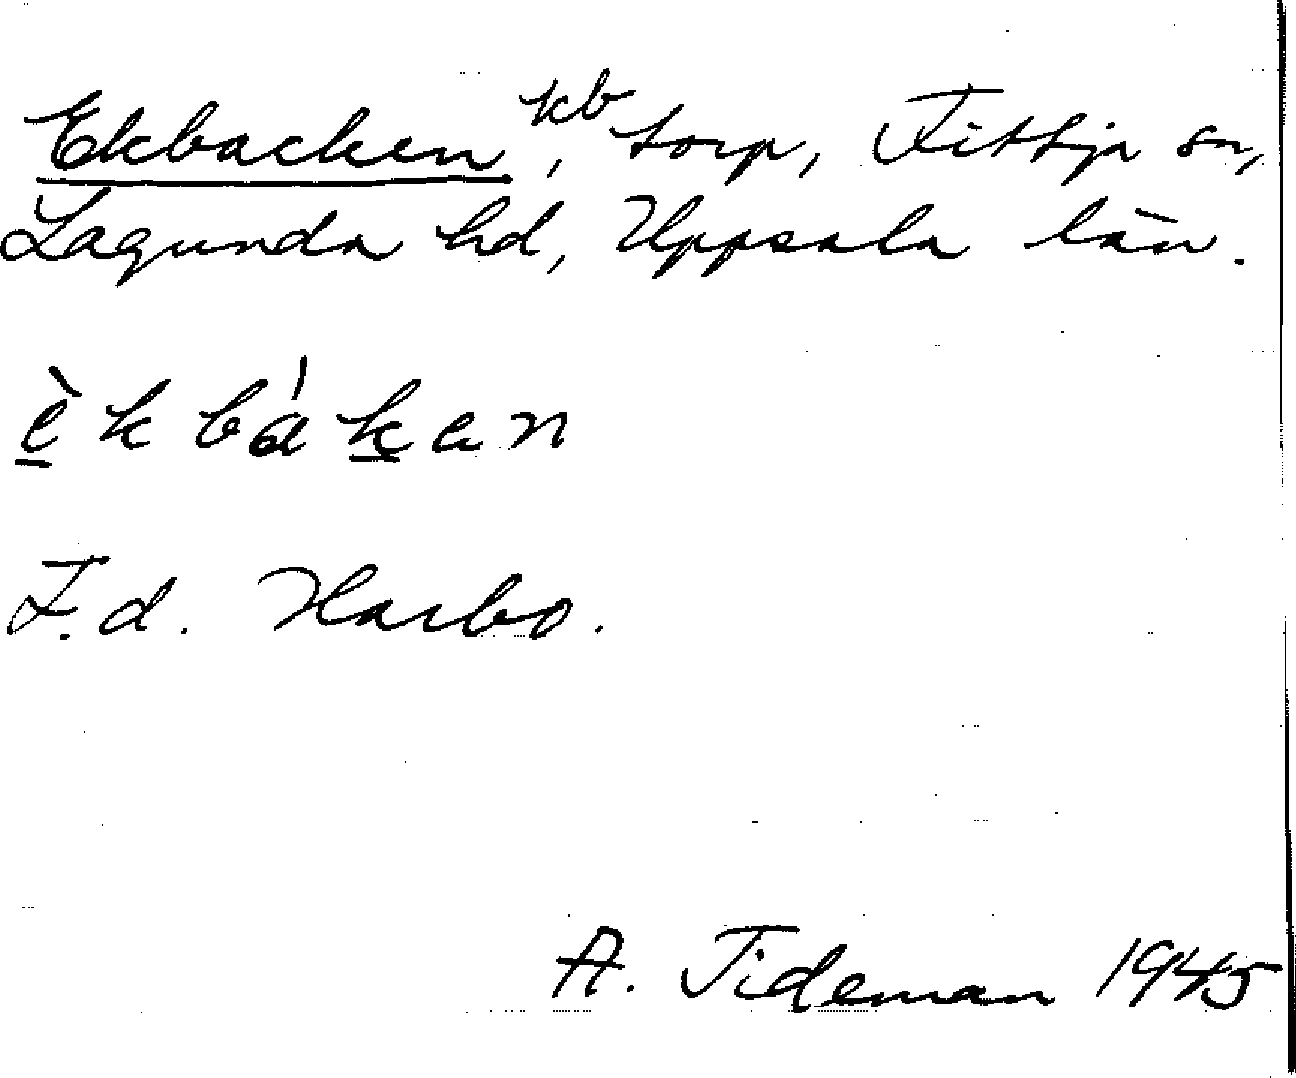 Ekbacken, kb torp, Fittja sn,
Lagunda hd, Uppsala län.
èkbákan
F.d. Harbo.
A. Tideman 1945